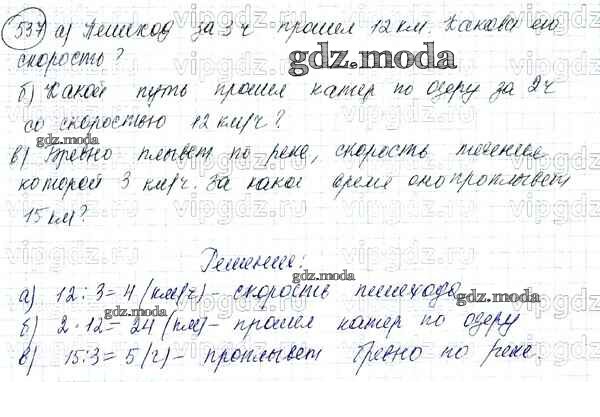 537 а) Пешеход за 3 ч прошел 12 км. Какова его
скорость?
gdz.moda
б) Какой путь прошел катер по озеру за 2ч
со скоростью 12 км/ч?
gdz.moda
в) Бревно плывет по реке, скорость течения
которой 3 км/ч. За какое время оно проплывет
15 км?
Решение:
gdz.moda
а) 12:3=4 (км/ч) - скорость пешехода
gdz.moda
gdz.moda
б) 2·12=24 (км) - прошел катер по озеру
в) 15:3=5 (ч) - проплывет бревно по реке.
gdz.moda
vipgdz.ru